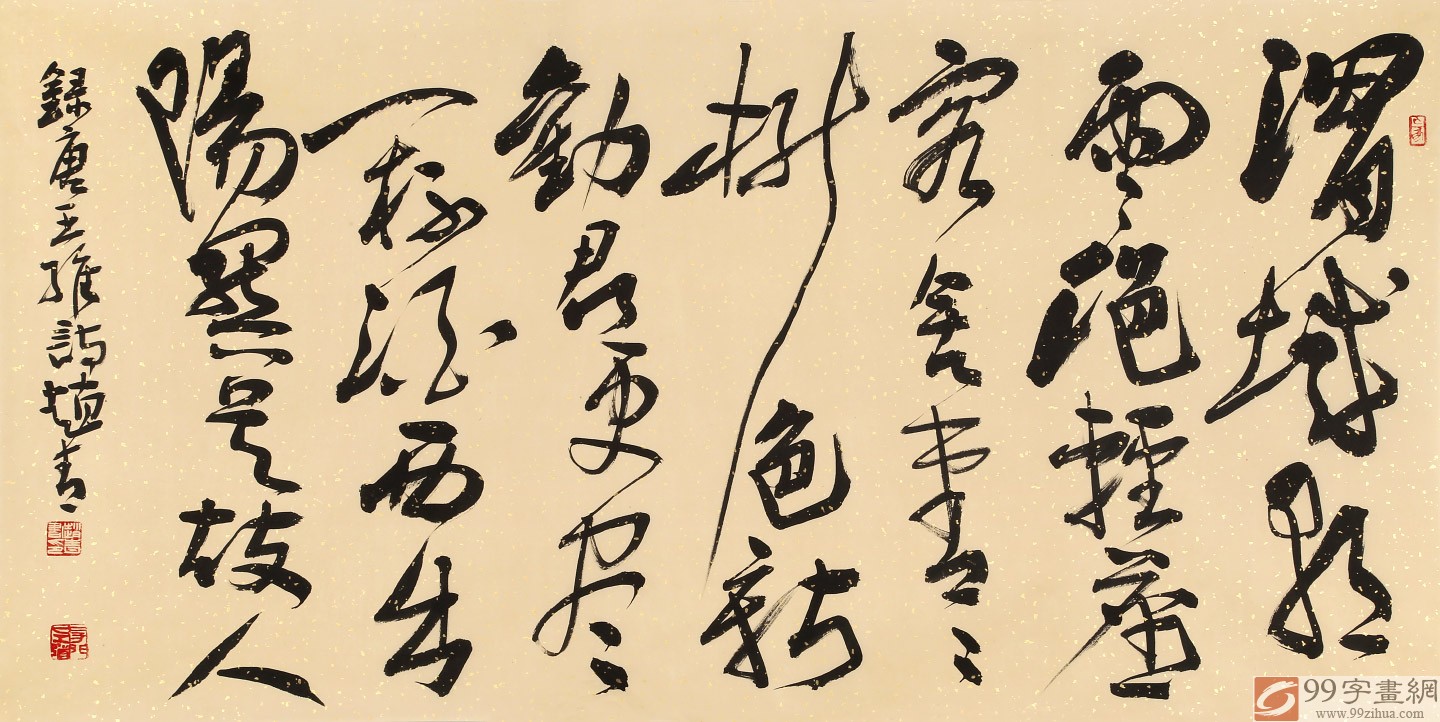 渭城朝
雨浥輕塵
客舍青々
柳色新
勸君更尽
一杯酒西出
陽關無故人
錄唐王維詩趙青
99字畫網
www.99zihua.com